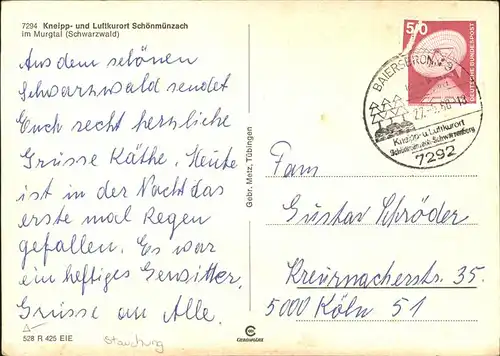 7294 Kneipp- und Luftkurort Schönmünzach
im Murgtal (Schwarzwald)
Aus dem schönen
Schwarzwald sendet
Euch recht herzliche
Grüsse Käthe. Heute
ist in der Nacht das
erste mal Regen
gefallen. Es war
ein heftiges Gewitter.
Grüsse an Alle.
528 R 425 EIE
Stauchung
Gebr. Metz, Tübingen
50
DEUTSCHE BUNDESPOST
BAIERSBRONN 9
Kneipp- u. Luftkurort
Schönmünzach-Schwarzenberg
7292
Fam
Gustav Schröder
Kreuznacherstr. 35.
5000 Köln 51